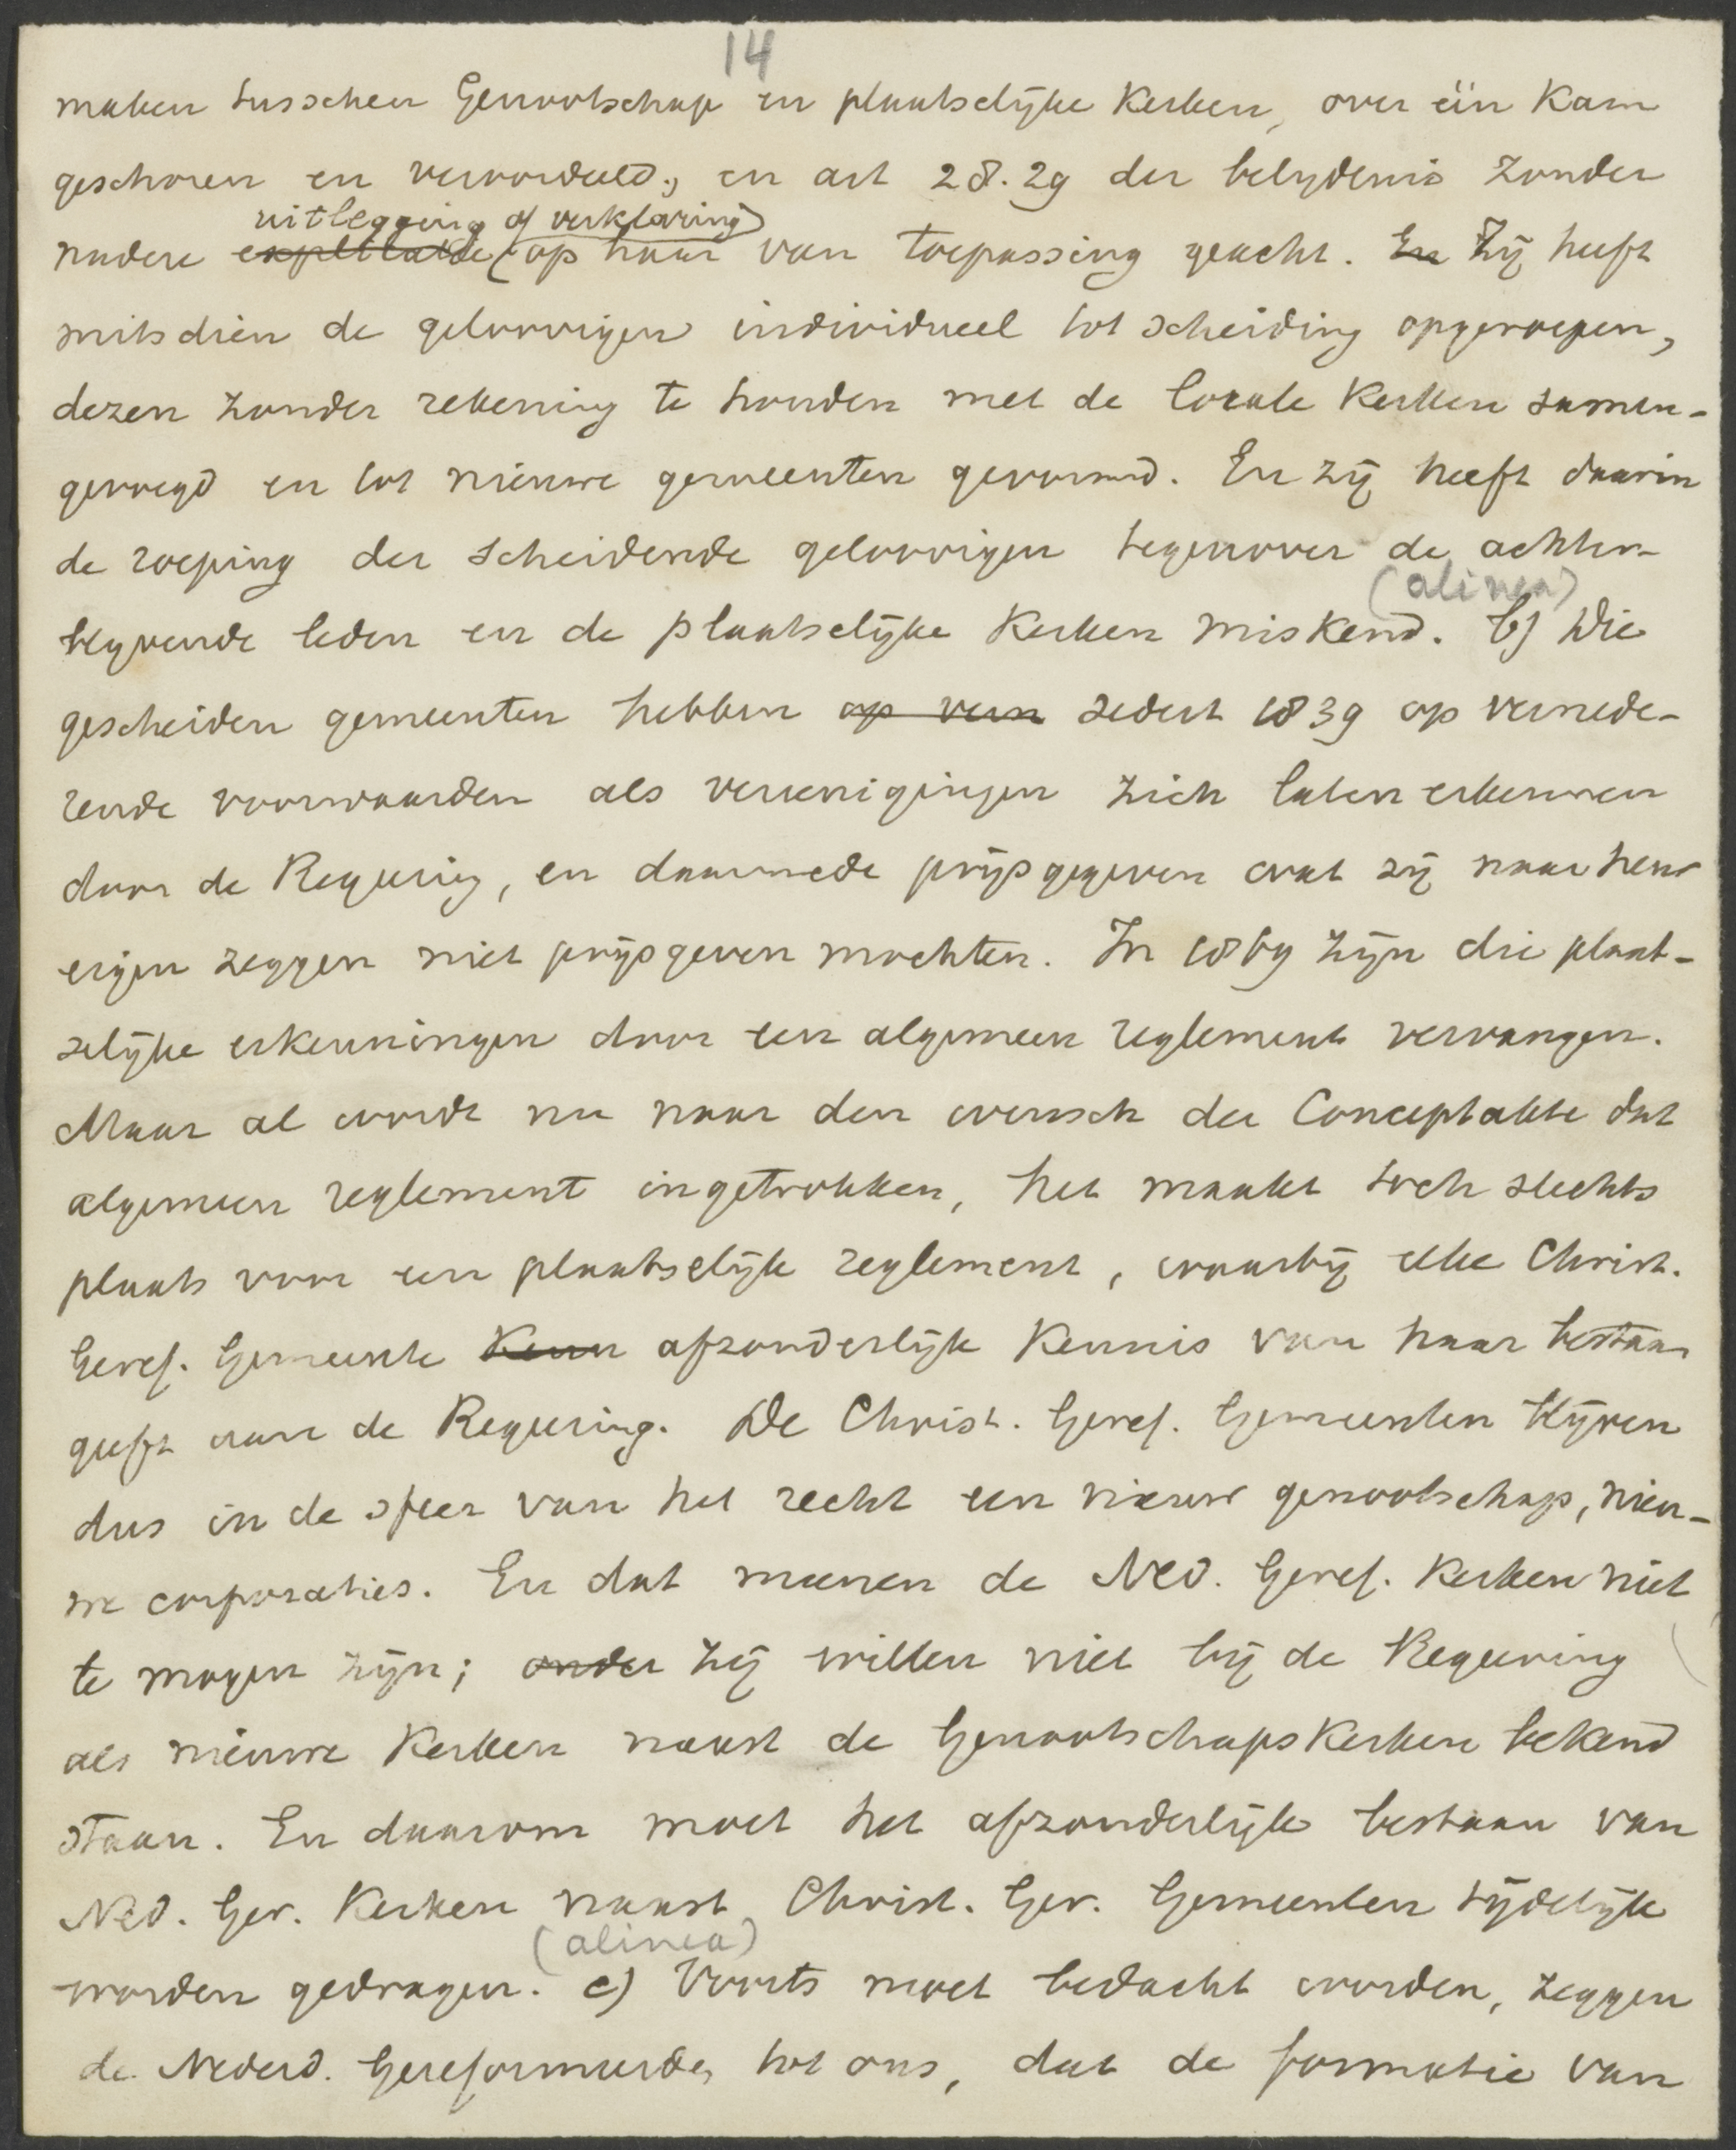 14
maken tusschen Genootschap en plaatselijke Kerken, over één Kam
geschoren en veroordeeld, en art 28. 29 der belydenis zonder
uitlegging of verklaring
nadere op haar van toepassing geacht. En Zij heeft
mitsdien de geloovigen individueel tot scheiding opgeroepen,
dezen zonder rekening te houden met de locale Kerken samen-
gevoegd en tot nieuwe gemeenten gevormd. En zij heeft daarin
de roeping der scheidende geloovigen tegenover de achter-
(alinea)
blyvende leden en de plaatselijke Kerken miskend. b) Die
gescheiden gemeenten hebben op vern sedert 1839 op vernede-
rende voorwaarden als vereenigingen zich laten erkennen
door de Regeering, en daarmede prijsgegeven wat zij naar hun
eigen zeggen niet prijsgeven mochten. In 1869 zijn die plaat-
selijke erkenningen door een algemeen reglement vervangen.
Maar al wordt nu naar den wensch der Conceptakte dat
algemeen reglement ingetrokken, het maakt toch slechts
plaats voor een plaatselijk reglement, waarbij elke Christ.
Geref. Gemeente Kenn afzonderlijk Kennis van haar bestaan
geeft aan de Regeering. De Christ. Geref. Gemeenten blijven
dus in de sfeer van het recht een nieuw genootschap, nieu-
we corporaties. En dat meenen de Ned. Geref. Kerken niet
te mogen zijn; onder zij willen niet bij de Regeering
als nieuwe Kerken naast de GenootschapsKerken bekend
staan. En daarom moet het afzonderlijk bestaan van
Ned. Ger. Kerken naast Christ. Ger. Gemeenten tijdelijk
(alinea)
worden gedragen. c) Voorts moet bedacht worden, zeggen
de Nederd. Gereformeerden tot ons, dat de formatie van